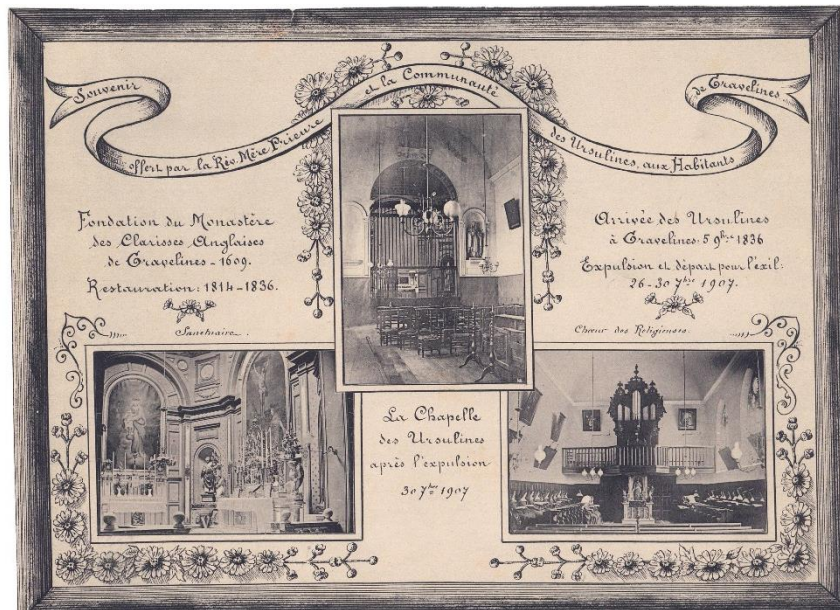 Souvenir
offert par la Rév. Mère Prieure
et la Communauté
des Ursulines, aux Habitants
de Gravelines
Fondation du Monastère
des Clarisses Anglaises
de Gravelines - 1609.
Restauration: 1814-1836.
Arrivée des Ursulines
à Gravelines: 5 9bre 1836
Expulsion et départ pour l'exil:
26-30 7bre 1907.
Sanctuaire.
Chœur des Religieuses.
La Chapelle
des Ursulines
après l'expulsion
30 7bre 1907